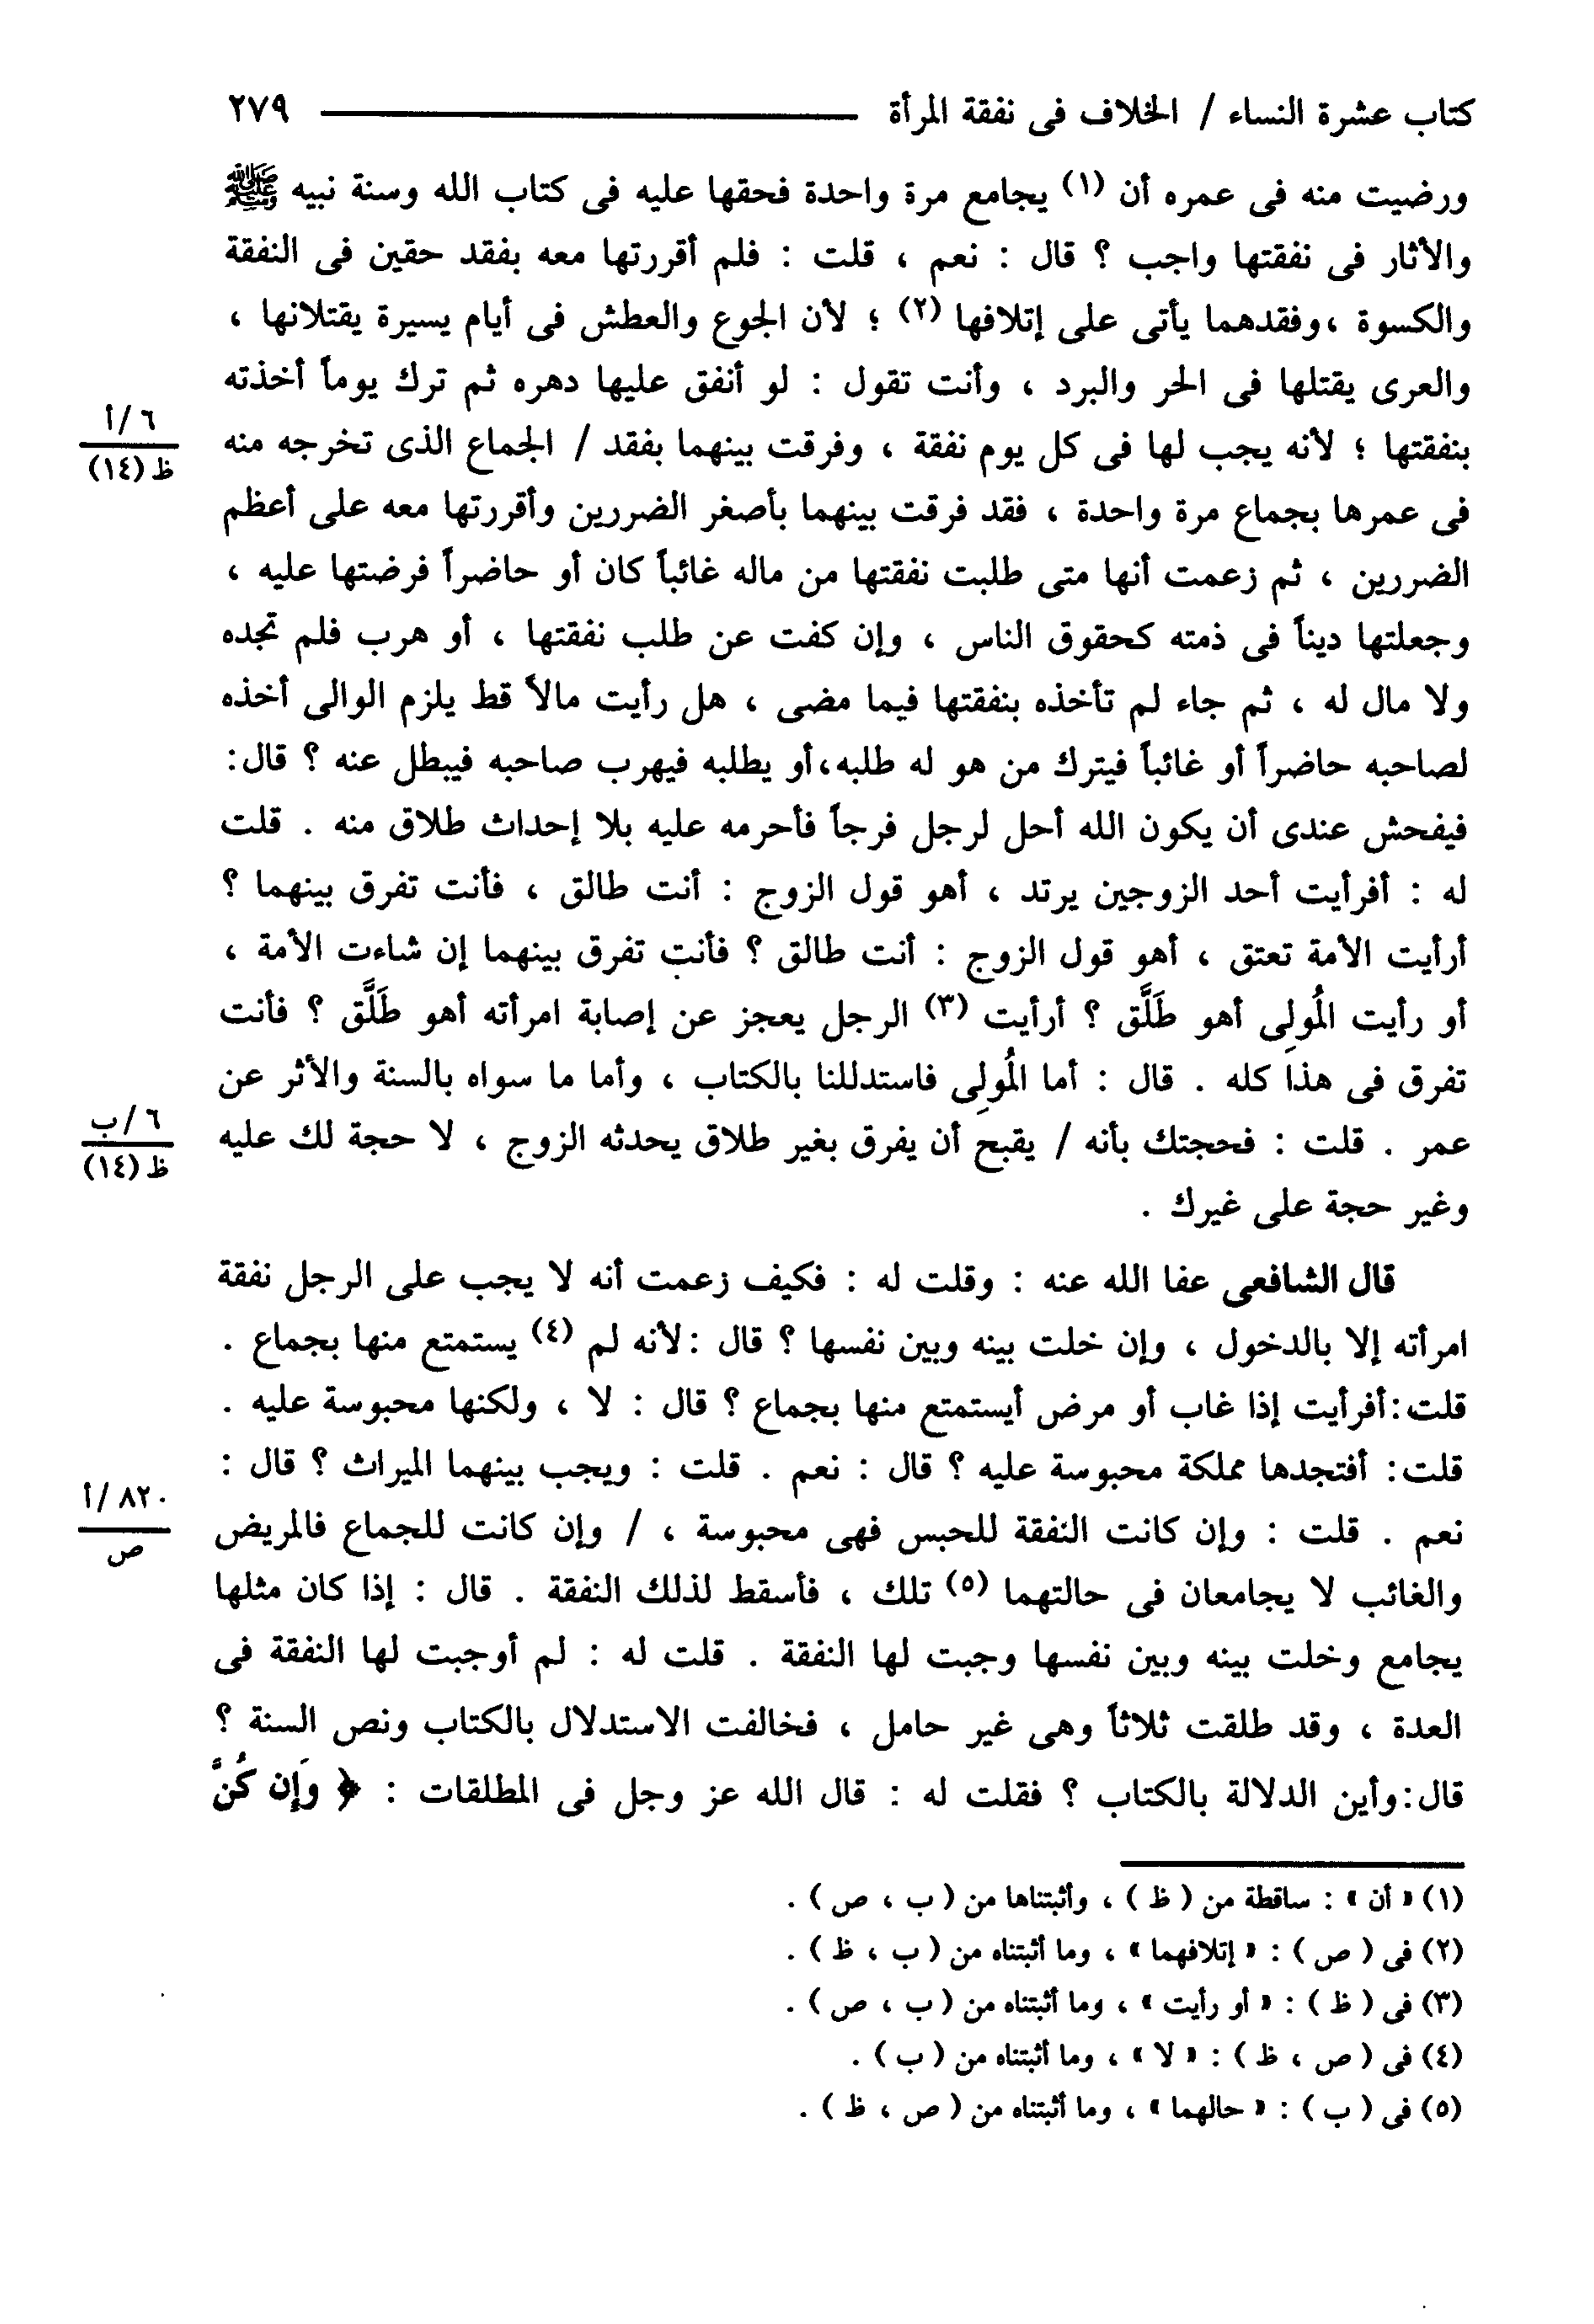 كتاب عشرة النساء / الخلاف فى نفقة المرأة ٢٧٩
ورضيت منه فى عمره أن (١) يجامع مرة واحدة فحقها عليه فى كتاب الله وسنة نبيه ﷺ
والآثار فى نفقتها واجب ؟ قال : نعم ، قلت : فلم أقررتها معه بفقد حقين فى النفقة
والكسوة ،وفقدهما يأتى على إتلافها (٢) ؛ لأن الجوع والعطش فى أيام يسيرة يقتلانها ،
والعرى يقتلها فى الحر والبرد ، وأنت تقول : لو أنفق عليها دهره ثم ترك يوماً أخذته
بنفقتها ؛ لأنه يجب لها فى كل يوم نفقة ، وفرقت بينهما بفقد / الجماع الذى تخرجه منه
٦/أ
ظ (١٤)
فى عمرها بجماع مرة واحدة ، فقد فرقت بينهما بأصغر الضررين وأقررتها معه على أعظم
الضررين ، ثم زعمت أنها متى طلبت نفقتها من ماله غائباً كان أو حاضراً فرضتها عليه ،
وجعلتها ديناً فى ذمته كحقوق الناس ، وإن كفت عن طلب نفقتها ، أو هرب فلم تجده
ولا مال له ، ثم جاء لم تأخذه بنفقتها فيما مضى ، هل رأيت مالاً قط يلزم الوالى أخذه
لصاحبه حاضراً أو غائباً فيترك من هو له طلبه،أو يطلبه فيهرب صاحبه فيبطل عنه ؟ قال:
فيفحش عندى أن يكون الله أحل لرجل فرجاً فأحرمه عليه بلا إحداث طلاق منه . قلت
له : أفرأيت أحد الزوجين يرتد ، أهو قول الزوج : أنت طالق ، فأنت تفرق بينهما ؟
أرأيت الأمة تعتق ، أهو قول الزوج : أنت طالق ؟ فأنت تفرق بينهما إن شاءت الأمة ،
أو رأيت المُولِى أهو طَلَّق ؟ أرأيت (٣) الرجل يعجز عن إصابة امرأته أهو طَلَّق ؟ فأنت
تفرق فى هذا كله . قال : أما المُولِى فاستدللنا بالكتاب ، وأما ما سواه بالسنة والأثر عن
عمر . قلت : فحجتك بأنه / يقبح أن يفرق بغير طلاق يحدثه الزوج ، لا حجة لك عليه
٦/ب
ظ (١٤)
وغير حجة على غيرك .
قال الشافعى عفا الله عنه : وقلت له : فكيف زعمت أنه لا يجب على الرجل نفقة
امرأته إلا بالدخول ، وإن خلت بينه وبين نفسها ؟ قال :لأنه لم (٤) يستمتع منها بجماع .
قلت:أفرأيت إذا غاب أو مرض أيستمتع منها بجماع ؟ قال : لا ، ولكنها محبوسة عليه .
قلت: أفتجدها مملكة محبوسة عليه ؟ قال : نعم . قلت : ويجب بينهما الميراث ؟ قال :
نعم . قلت : وإن كانت النفقة للحبس فهى محبوسة ، / وإن كانت للجماع فالمريض
٨٢٠/أ
ص
والغائب لا يجامعان فى حالتهما (٥) تلك ، فأسقط لذلك النفقة . قال : إذا كان مثلها
يجامع وخلت بينه وبين نفسها وجبت لها النفقة . قلت له : لم أوجبت لها النفقة فى
العدة ، وقد طلقت ثلاثاً وهى غير حامل ، فخالفت الاستدلال بالكتاب ونص السنة ؟
قال:وأين الدلالة بالكتاب ؟ فقلت له : قال الله عز وجل فى المطلقات : ﴿ وَإِن كُنَّ
(١) « أن » : ساقطة من ( ظ ) ، وأثبتناها من ( ب ، ص ) .
(٢) فى ( ص ) : « إتلافهما » ، وما أثبتناه من ( ب ، ظ ) .
(٣) فى ( ظ ) : « أو رأيت » ، وما أثبتناه من ( ب ، ص ) .
(٤) فى ( ص ، ظ ) : « لا » ، وما أثبتناه من ( ب ) .
(٥) فى ( ب ) : « حالهما » ، وما أثبتناه من ( ص ، ظ ) .